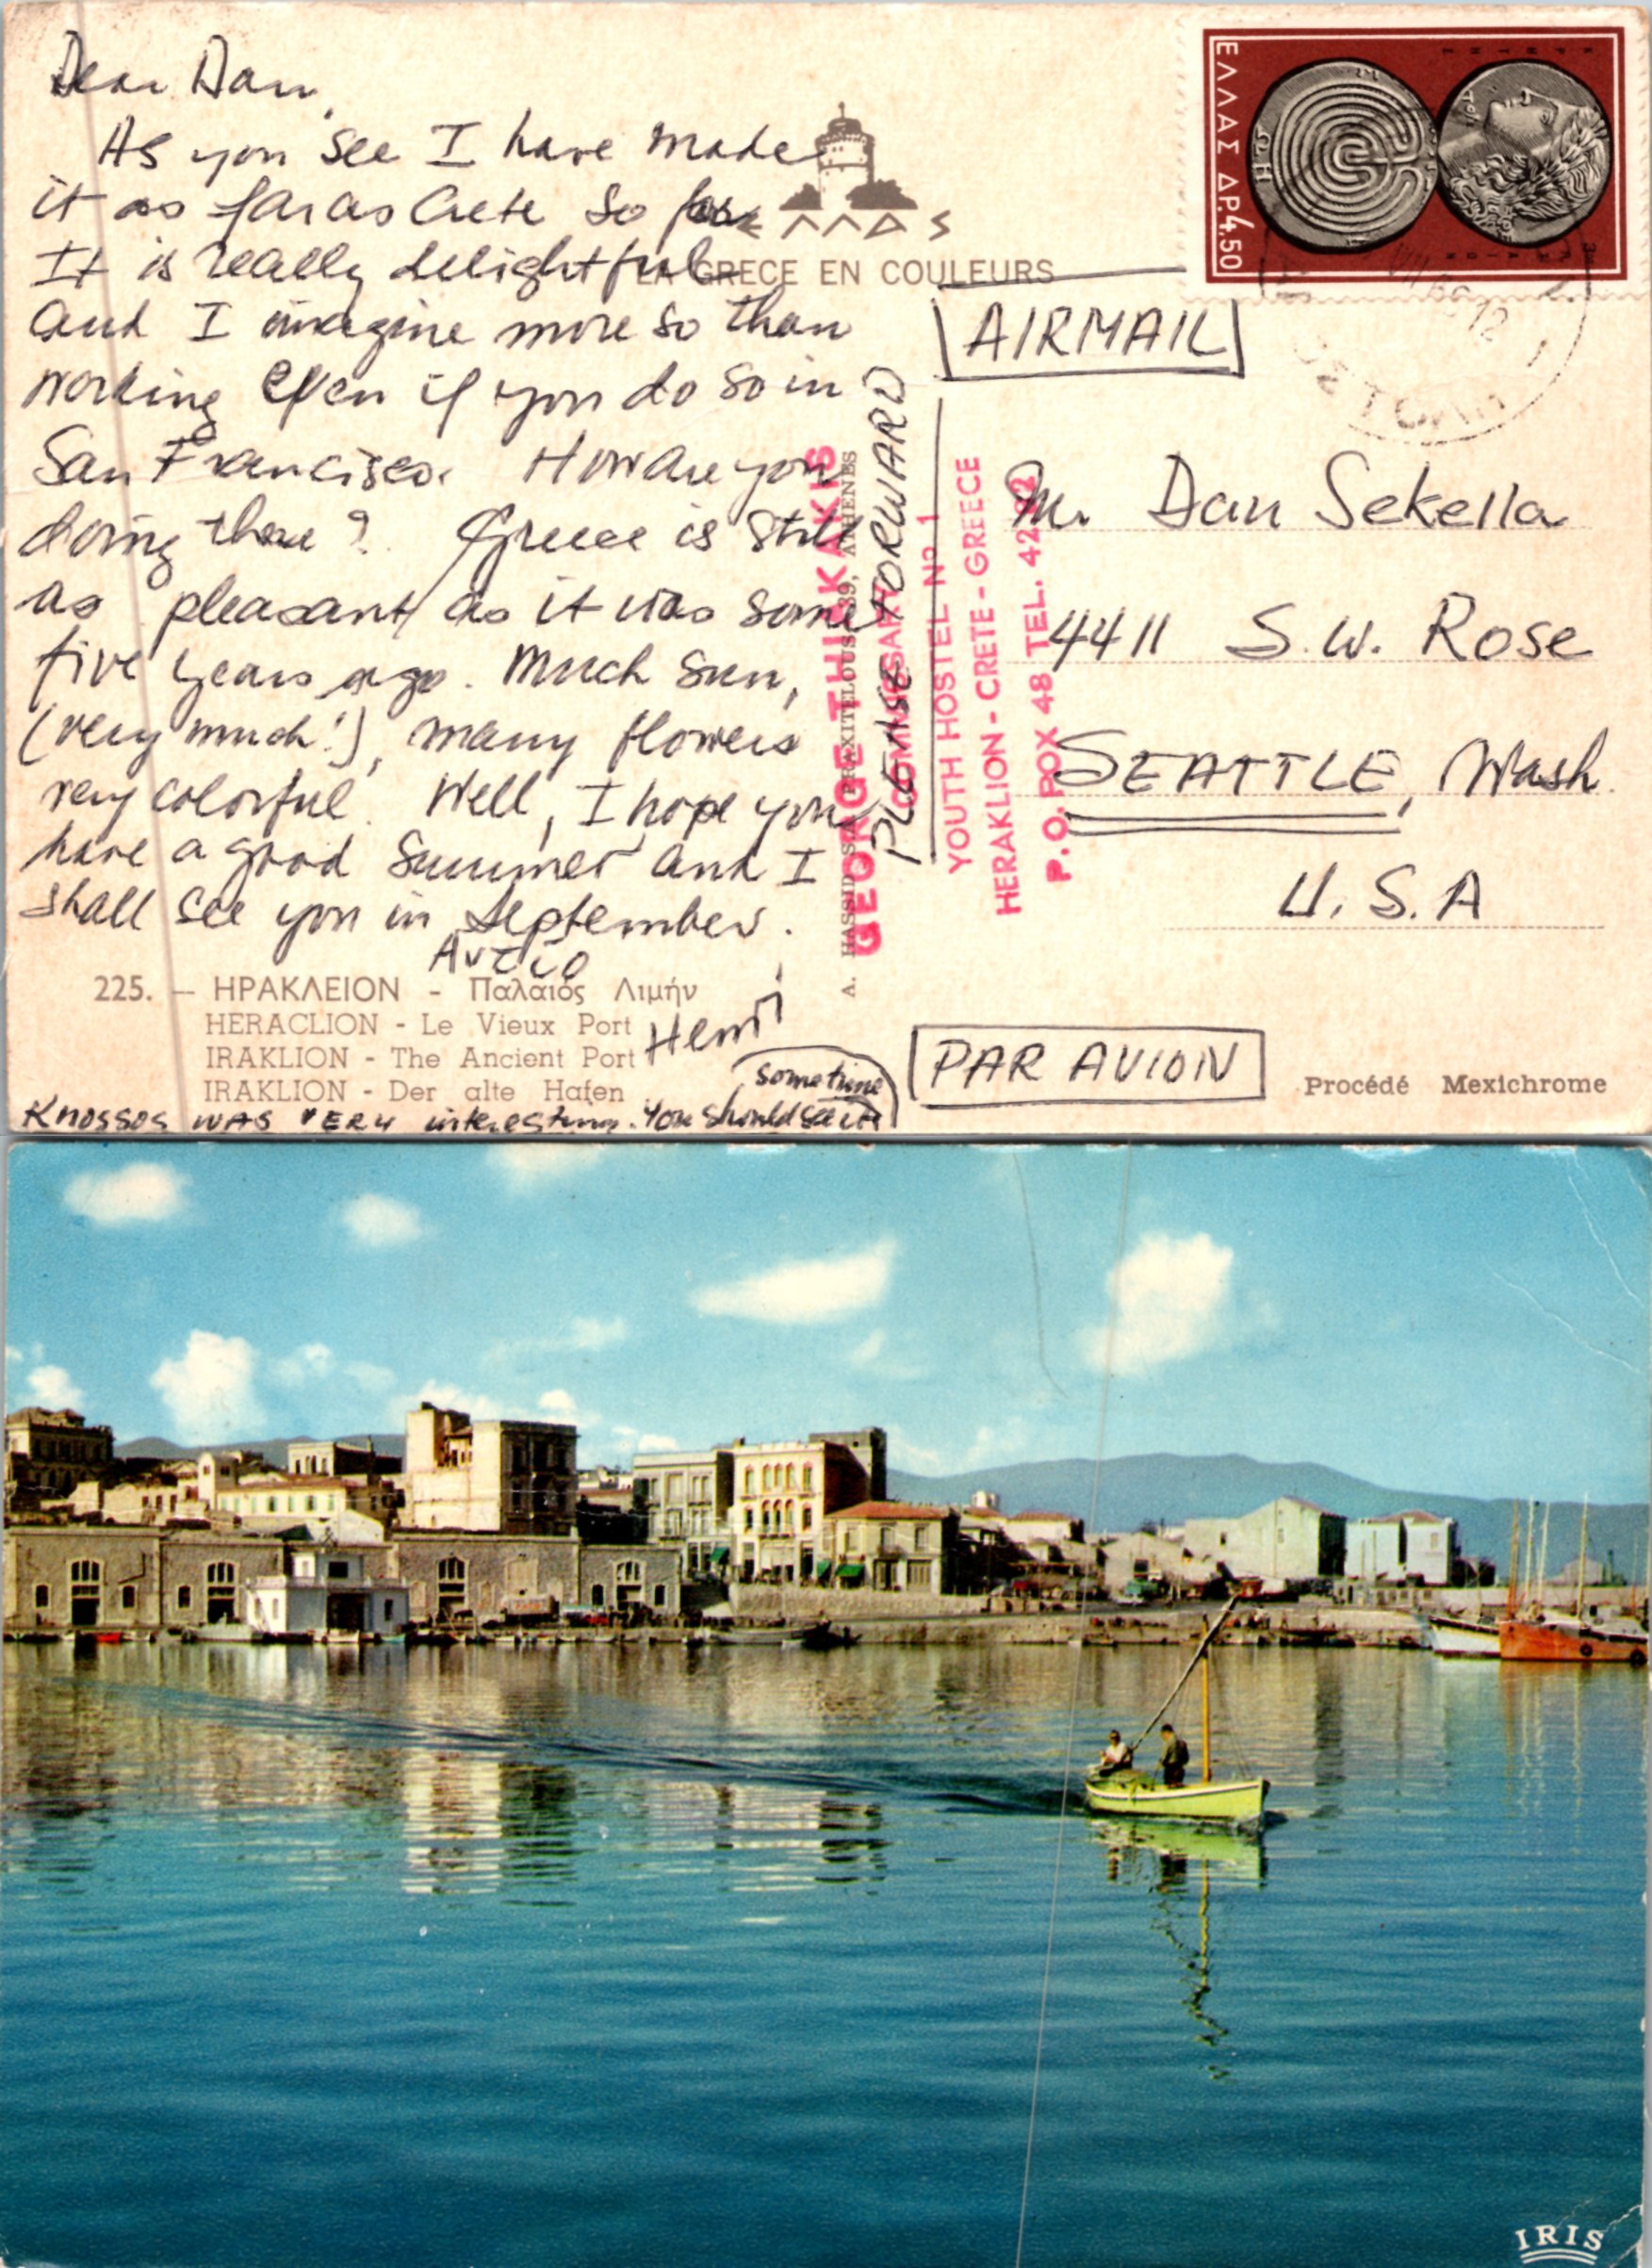 Dear Dan,
As you see I have made
it as far as Crete so far
It is really delightful
and I imagine more so than
working even if you do so in
San Francisco. How are you
doing there? Greece is still
as pleasant as it was some
five years ago. Much sun,
(very much!), many flowers
very colorful. Well, I hope you
have a good summer and I
shall see you in September.
Αντίο
Henri
225. — ΗΡΑΚΛΕΙΟΝ - Παλαιός Λιμήν
HERACLION - Le Vieux Port
IRAKLION - The Ancient Port
IRAKLION - Der alte Hafen
KNOSSOS WAS VERY interesting. You should see it
sometime
LA GRECE EN COULEURS
A. HASSID SA PRAXITELOUS 39, ATHENES
GEORGE THIAKAKIS
YOUTH HOSTEL Nº 1
HERAKLION - CRETE - GREECE
P.O. BOX 48 TEL. 42
PLEASE FORWARD
ΕΛΛΑΣ ΔΡ. 4,50
AIRMAIL
Mr. Dan Sekella
4411 S.W. Rose
SEATTLE, Wash.
U.S.A
PAR AVION
Procédé Mexichrome
IRIS